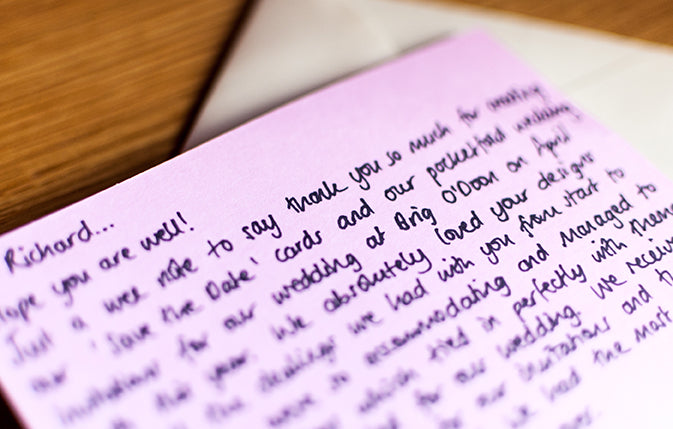 Richard...
ope you are well!
Just a wee note to say thank you so much for creating
our 'Save the Date' cards and our pocketfold wedding
invitations for our wedding at Brig O'Doon on April
this year. We absolutely loved your designs
the dealings we had with you from start to
were so accommodating and managed to
which tied in perfectly with theme
for our wedding. We receive
for our invitations and th
we had the most